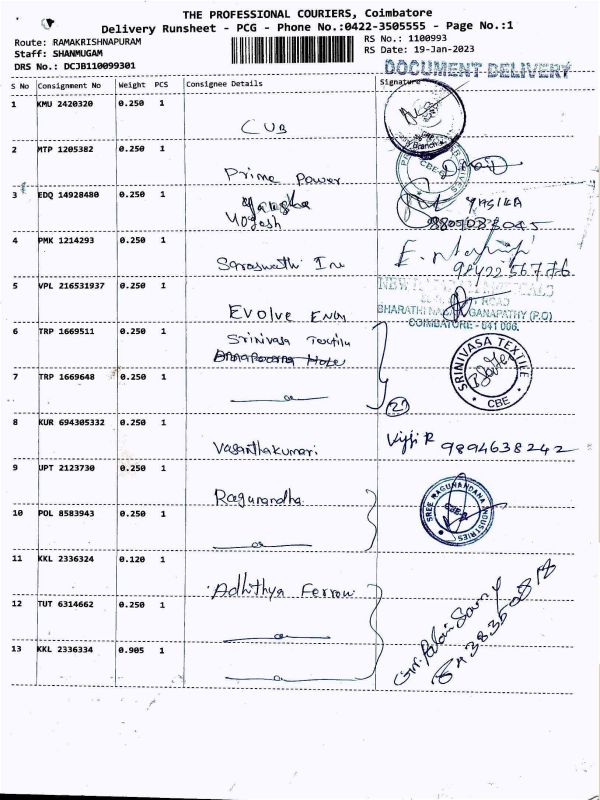 THE PROFESSIONAL COURIERS, Coimbatore
Delivery Runsheet - PCG - Phone No.:0422-3505555 - Page No.:1
Route: RAMAKRISHNAPURAM
RS No.: 1100993
Staff: SHANMUGAM
RS Date: 19-Jan-2023
DRS No.: DCJB110099301
DOCUMENT DELIVERY
S No Consignment No Weight PCS Consignee Details Signature
1 KMU 2420320 0.250 1
CUB
2 MTP 1205382 0.250 1
CBE
Prime Power
3 EDQ 14928480 0.250 1
Yogesh
8809083045
4 PMK 1214293 0.250 1
Saraswathi Ins
9842256776
5 VPL 216531937 0.250 1
BHARATHI NAGAR, GANAPATHY (P.O)
COIMBATORE - 641 006.
Evolve Engg
6 TRP 1669511 0.250 1
Srinivasa Textile
SRINIVASA TEXTILE
CBE
7 TRP 1669648 0.250 1
8 KUR 694305332 0.250 1
Vasanthakumari
9894638242
9 UPT 2123730 0.250 1
Ragunandha
SREE RAGUNANDANA INDUSTRIES
10 POL 8583943 0.250 1
11 KKL 2336324 0.120 1
Adhithya Ferrow
12 TUT 6314662 0.250 1
13 KKL 2336334 0.905 1